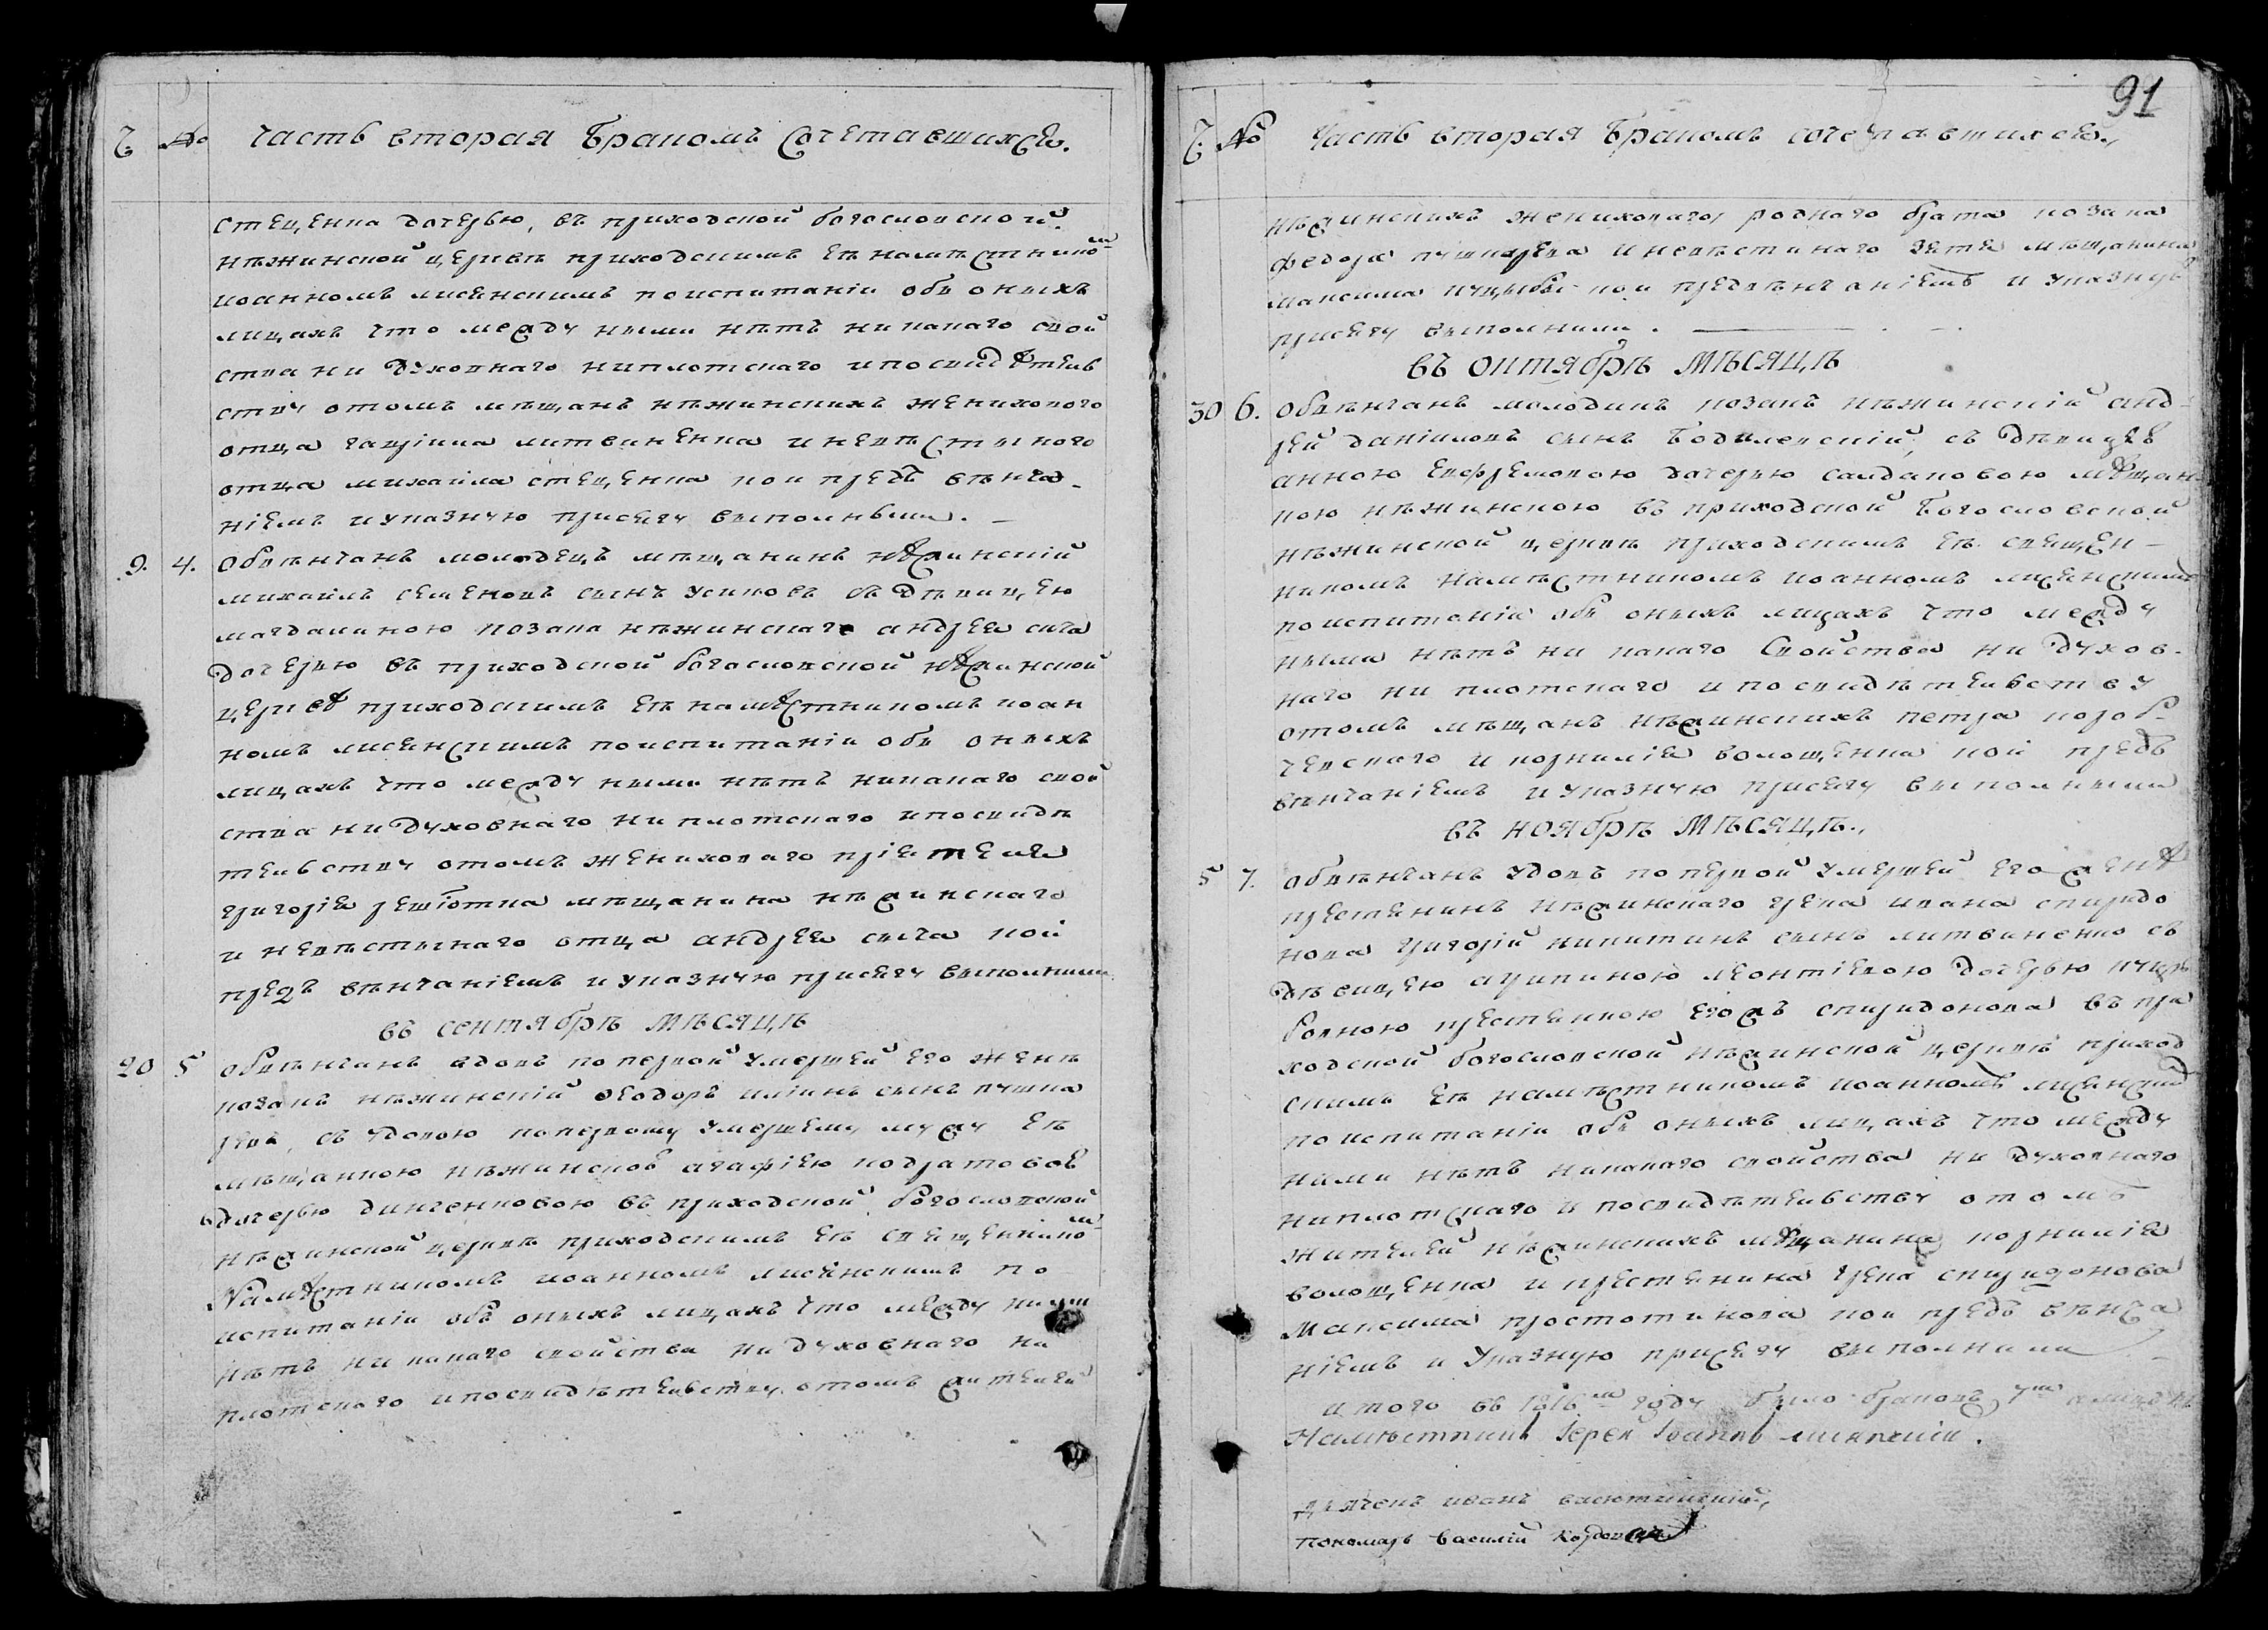 Ч № Часть вторая Бракомъ Сочетавшихся.
стеценка дочерью, въ приходской богословской
нѣжинской церквѣ приходскимъ еѣ намѣстнико-м
иоанномъ лисенскимъ поиспитаніи обв оныхъ
лицахъ что между ными нѣтъ никакаго свой
ства ни духовнаго ниплотскаго ипосвидѣтелв
ству отомъ мѣщанъ нѣжинскихъ женихового
отца литвиненка и невѣстиного
отца михаила стеценка кои предъ вѣнча-
ніемъ иуказную присягу выполныли. —
9. 4. Обвѣнчанъ молодецъ мѣщанинъ нѣжинскій
михаилъ семеновъ сынъ усиковъ съ дѣвицею
магдалиною козака нѣжинскаго андрея сыча
дочерью въ приходской богословской нѣжинской
церквѣ приходскимъ еѣ намѣстникомъ иоан
номъ лисенскимъ поиспитаніи обв оныхъ
лицахъ что между ными нѣтъ никакаго свой
ства нидуховнаго ни плотскаго ипосвидѣ
телвству отомъ женихового пріятеля
григорія решотка мѣщанина нѣжинскаго
и невѣстынаго отца андрея сыча кои
предъ вѣнчаніемъ и указную присягу выполнили
въ сентябрѣ мѣсяцѣ
20 5 обвѣнчанъ вдовъ попервой умершей его женѣ
козакъ нѣжинскій ѳеодоръ иліинъ сынъ кушка
рева, съ удовою попервому умершему мужу еѣ
мѣщанкою нѣжинскою агафіею кодратовою
дочерью динченковою въ приходской богословской
нѣжинской церквѣ приходскимъ еѣ священико-м
Намѣстникомъ иоанномъ лисенскимъ по
испитаніи обв оныхъ лицахъ что между ними
нѣтъ никакаго свойства ни духовнаго ни
плотскаго ипосвидѣтелвству отомъ жителей
91
Ч. № Часть вторая Бракомъ сочетавшихся.
нѣжинскихъ женихового роднаго брата козака
федора кушкарева иневѣстинаго зятя мѣщанина
максима кои предвѣнчаніемъ и указную
присягу выполнили.
въ октябрѣ мѣсяцѣ
30 6. Обвѣнчанъ молодикъ козакъ нѣжинскій анд-
рей даніиловъ сынъ Бодилевскій, съ дѣвицею
анною евфремовою дочерью салдаковою мѣщан
кою нѣжинскою въ приходской Богословской
нѣжинской церквѣ приходскимъ еѣ священ-
никомъ намѣстникомъ иоанномъ лисенскимъ
поиспитаніи обв оныхъ лицахъ что между
ными нѣтъ ни какаго Свойства ни духов-
наго ни плотскаго ипосвидѣтелвству
отомъ мѣщанъ нѣжинскихъ петра короб-
чевскаго и корнилія волощенка кои предъ
вѣнчаніемъ иуказную присягу выполныли
въ ноябрѣ мѣсяцѣ.
5 7. обвѣнчанъ удовъ попервой умершей его женѣ
крестянинъ нѣжинскаго грека ивана спиридо
нова григорій никитинъ сынъ литвиненко съ
дѣвицею агрипиною леонтіевою дочерью
крестянкою егожъ спиридонова въ при
ходской богословской нѣжинской церквѣ приход
скимъ еѣ намѣстникомъ иоанномъ лисенским
поиспитаніи обв оныхъ лицахъ что между
ними нѣтъ никакаго свойства ни духовнаго
ниплотскаго и посвидѣтелвству отомъ
жителей нѣжинскихъ мѣщанина корнилія
волощенка и крестянина грека спиридонова
максима простотинова кои предъ вѣнча
ніемъ и указную присягу выполнили
итого въ 1816-м году было браковъ 7-м
Намѣстникъ Іерей Іоаннъ лисенскій.
Дьячокъ иванъ
пономаръ василій